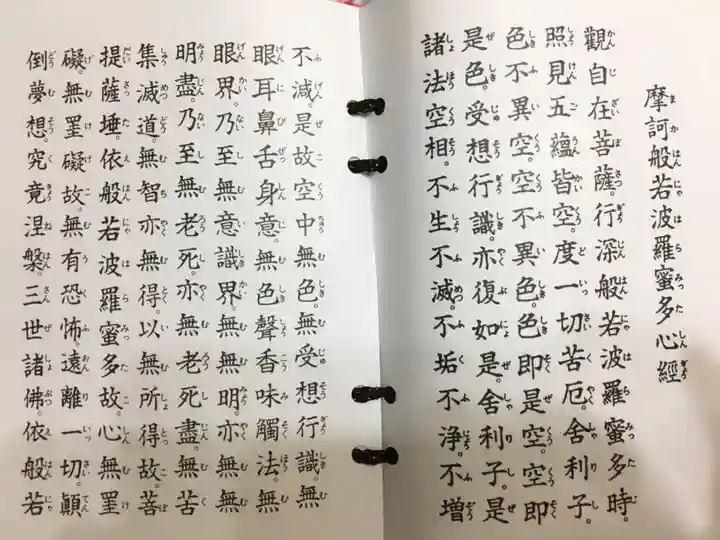 摩訶般若波羅蜜多心經
觀自在菩薩。行深般若波羅蜜多時。
照見五蘊皆空。度一切苦厄。舍利子。
色不異空。空不異色。色即是空。空即
是色。受想行識。亦復如是。舍利子。是
諸法空相。不生不滅。不垢不淨。不增
不滅。是故空中無色。無受想行識。無
眼耳鼻舌身意。無色聲香味觸法。無
眼界。乃至無意識界。無無明。亦無無
明盡。乃至無老死。亦無老死盡。無苦
集滅道。無智亦無得。以無所得故。菩
提薩埵。依般若波羅蜜多故。心無罣
礙。無罣礙故。無有恐怖。遠離一切。顛
倒夢想。究竟涅槃。三世諸佛。依般若